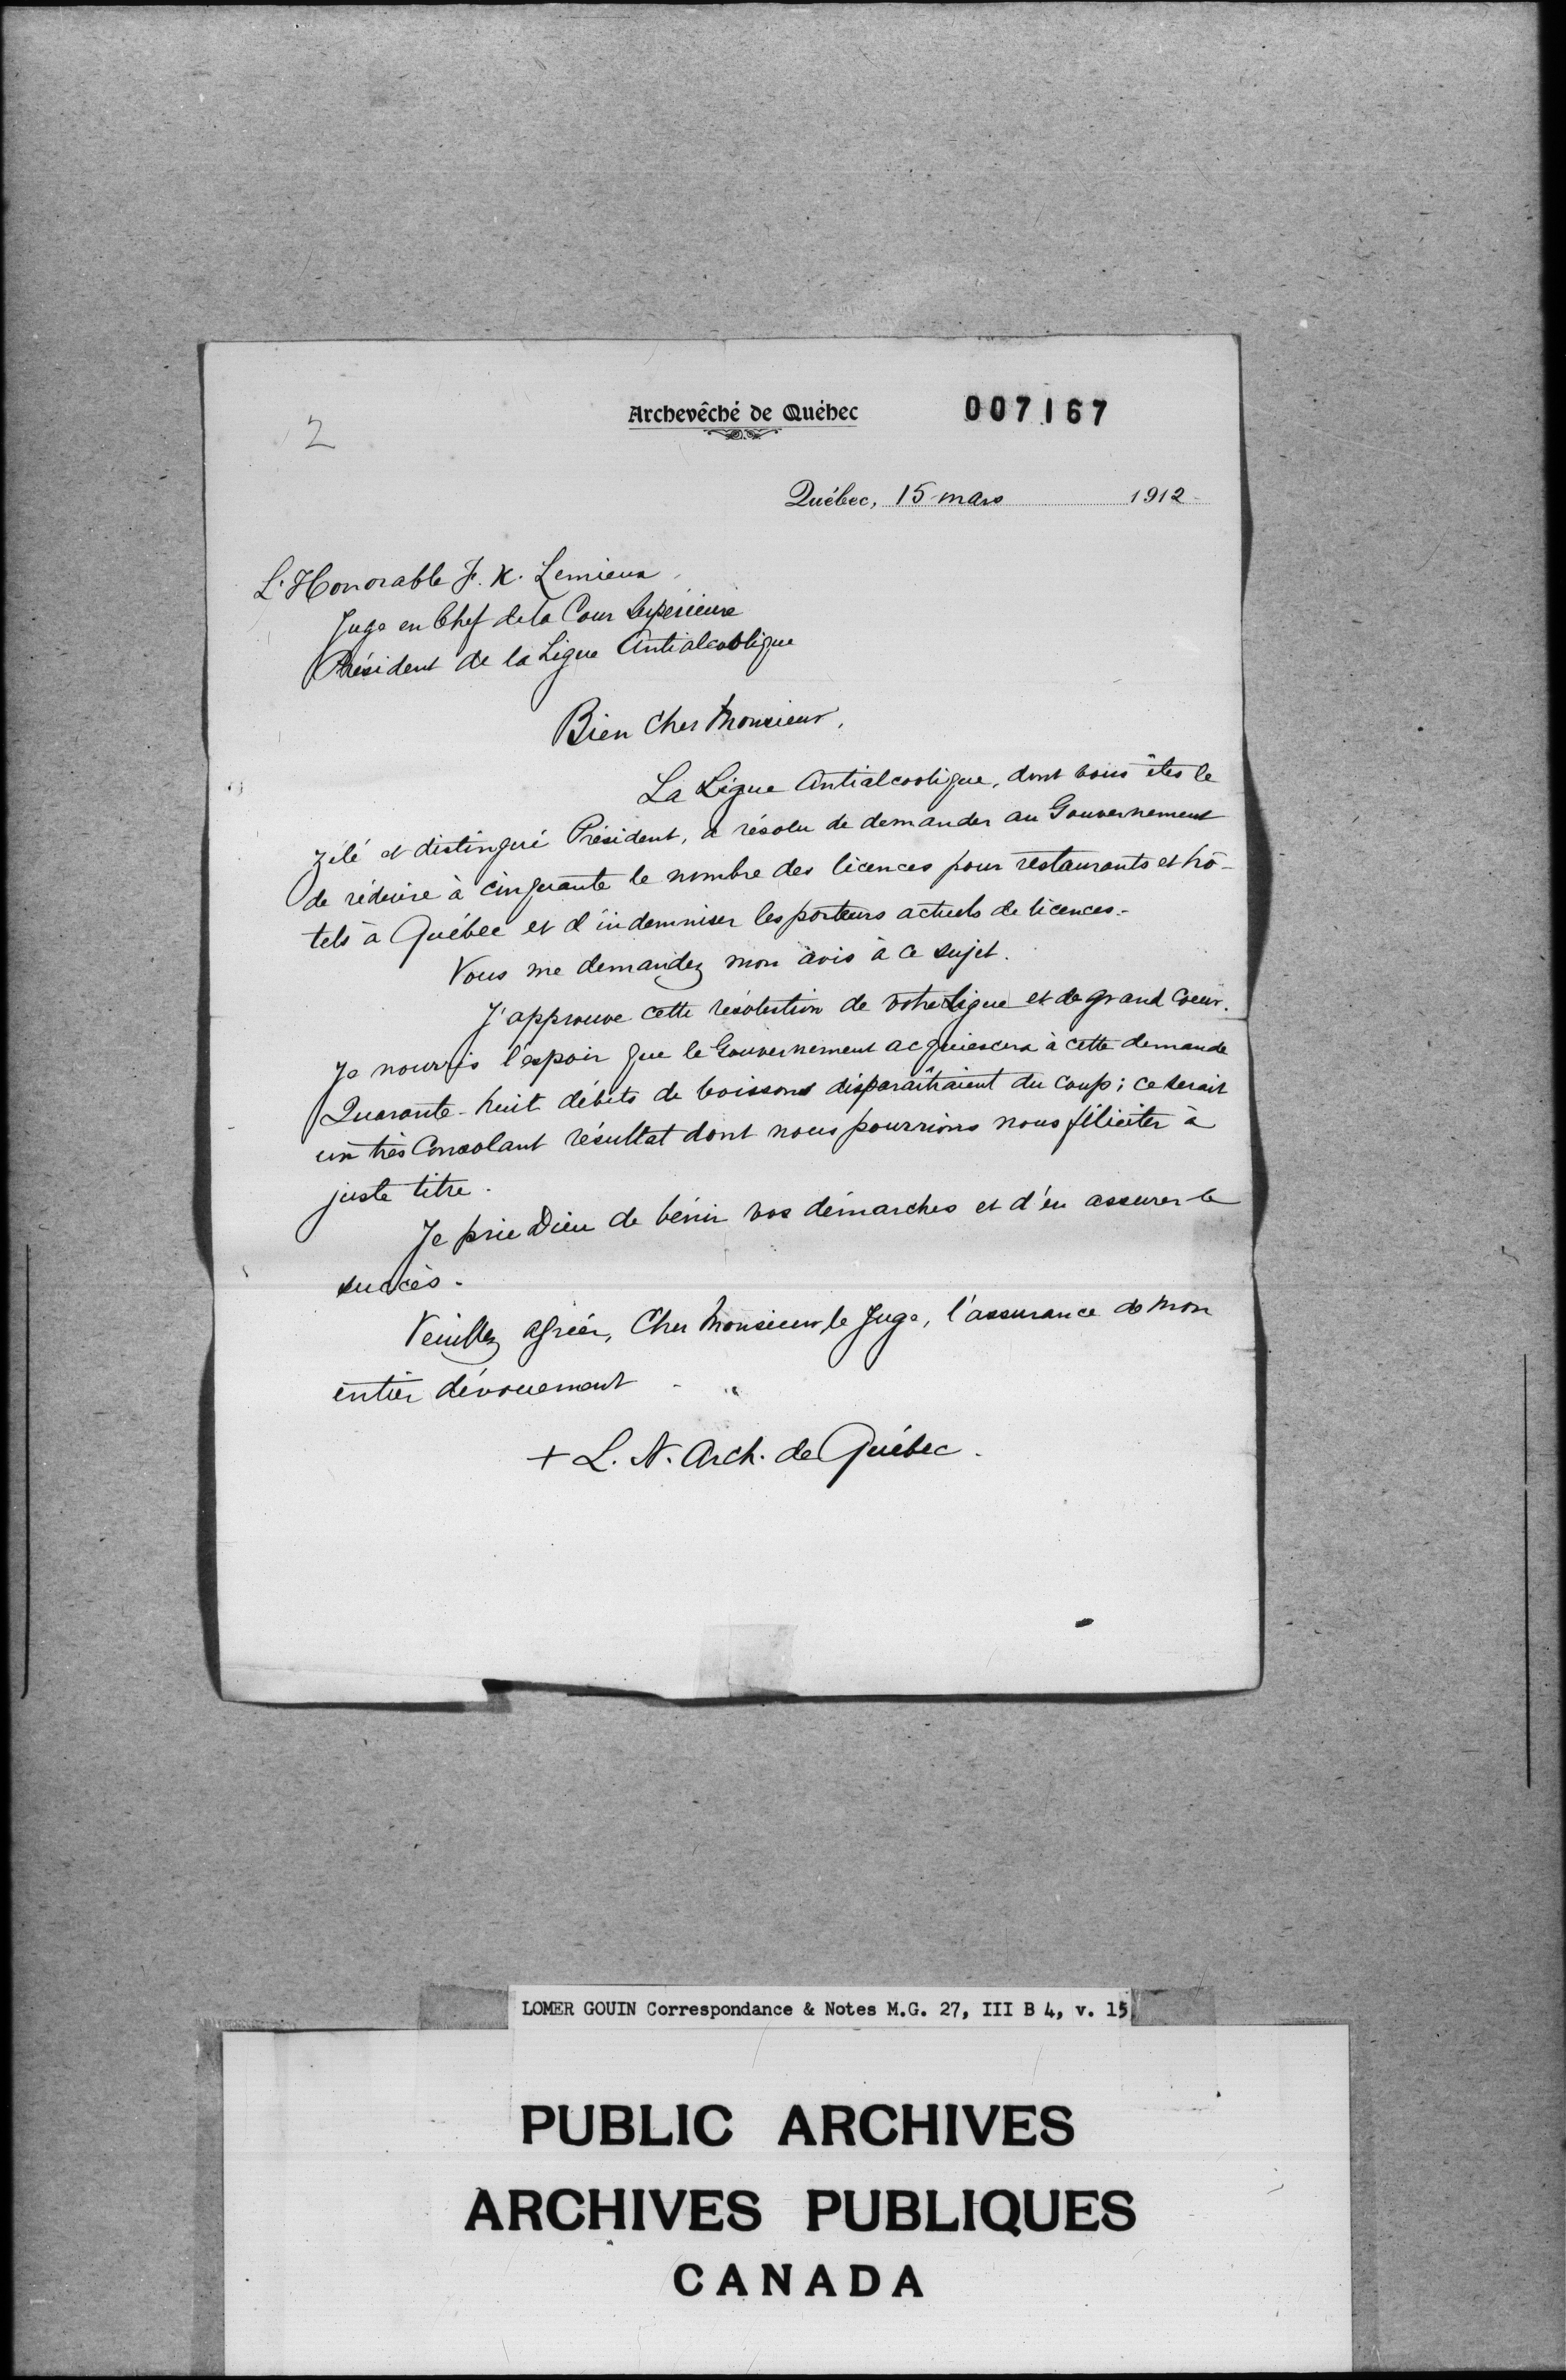 2
Archevêché de Québec
007167
Québec, 15 mars 1912
L'Honorable F. X. Lemieux,
Juge en Chef de la Cour Supérieure
Président de la Ligue Antialcoolique
Bien Cher Monsieur,
La Ligue Antialcoolique, dont vous êtes le
zélé et distingué Président, a résolu de demander au Gouvernement
de réduire à cinquante le nombre des licences pour restaurants et hô-
tels à Québec et d'indemniser les porteurs actuels de licences.-
Vous me demandez mon avis à ce sujet.
J'approuve cette résolution de votre Ligue et de grand Coeur.
Je nourris l'espoir que le Gouvernement acquiescera à cette demande
Quarante-huit débits de boissons disparaîtraient du coup; ce serait
un très Consolant résultat dont nous pourrions nous féliciter à
juste titre.
Je prie Dieu de bénir vos démarches et d'en assurer le
succès.
Veuillez agréer, Cher Monsieur le Juge, l'assurance de mon
entier dévouement.
+ L. N. Arch. de Québec.
LOMER GOUIN Correspondance & Notes M.G. 27, III B 4, v. 15
PUBLIC ARCHIVES
ARCHIVES PUBLIQUES
CANADA